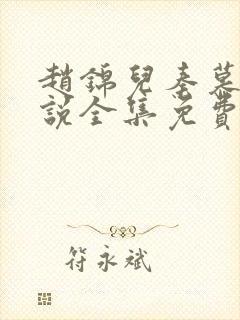 趙錦兒秦慕
説全集免費
符永斌